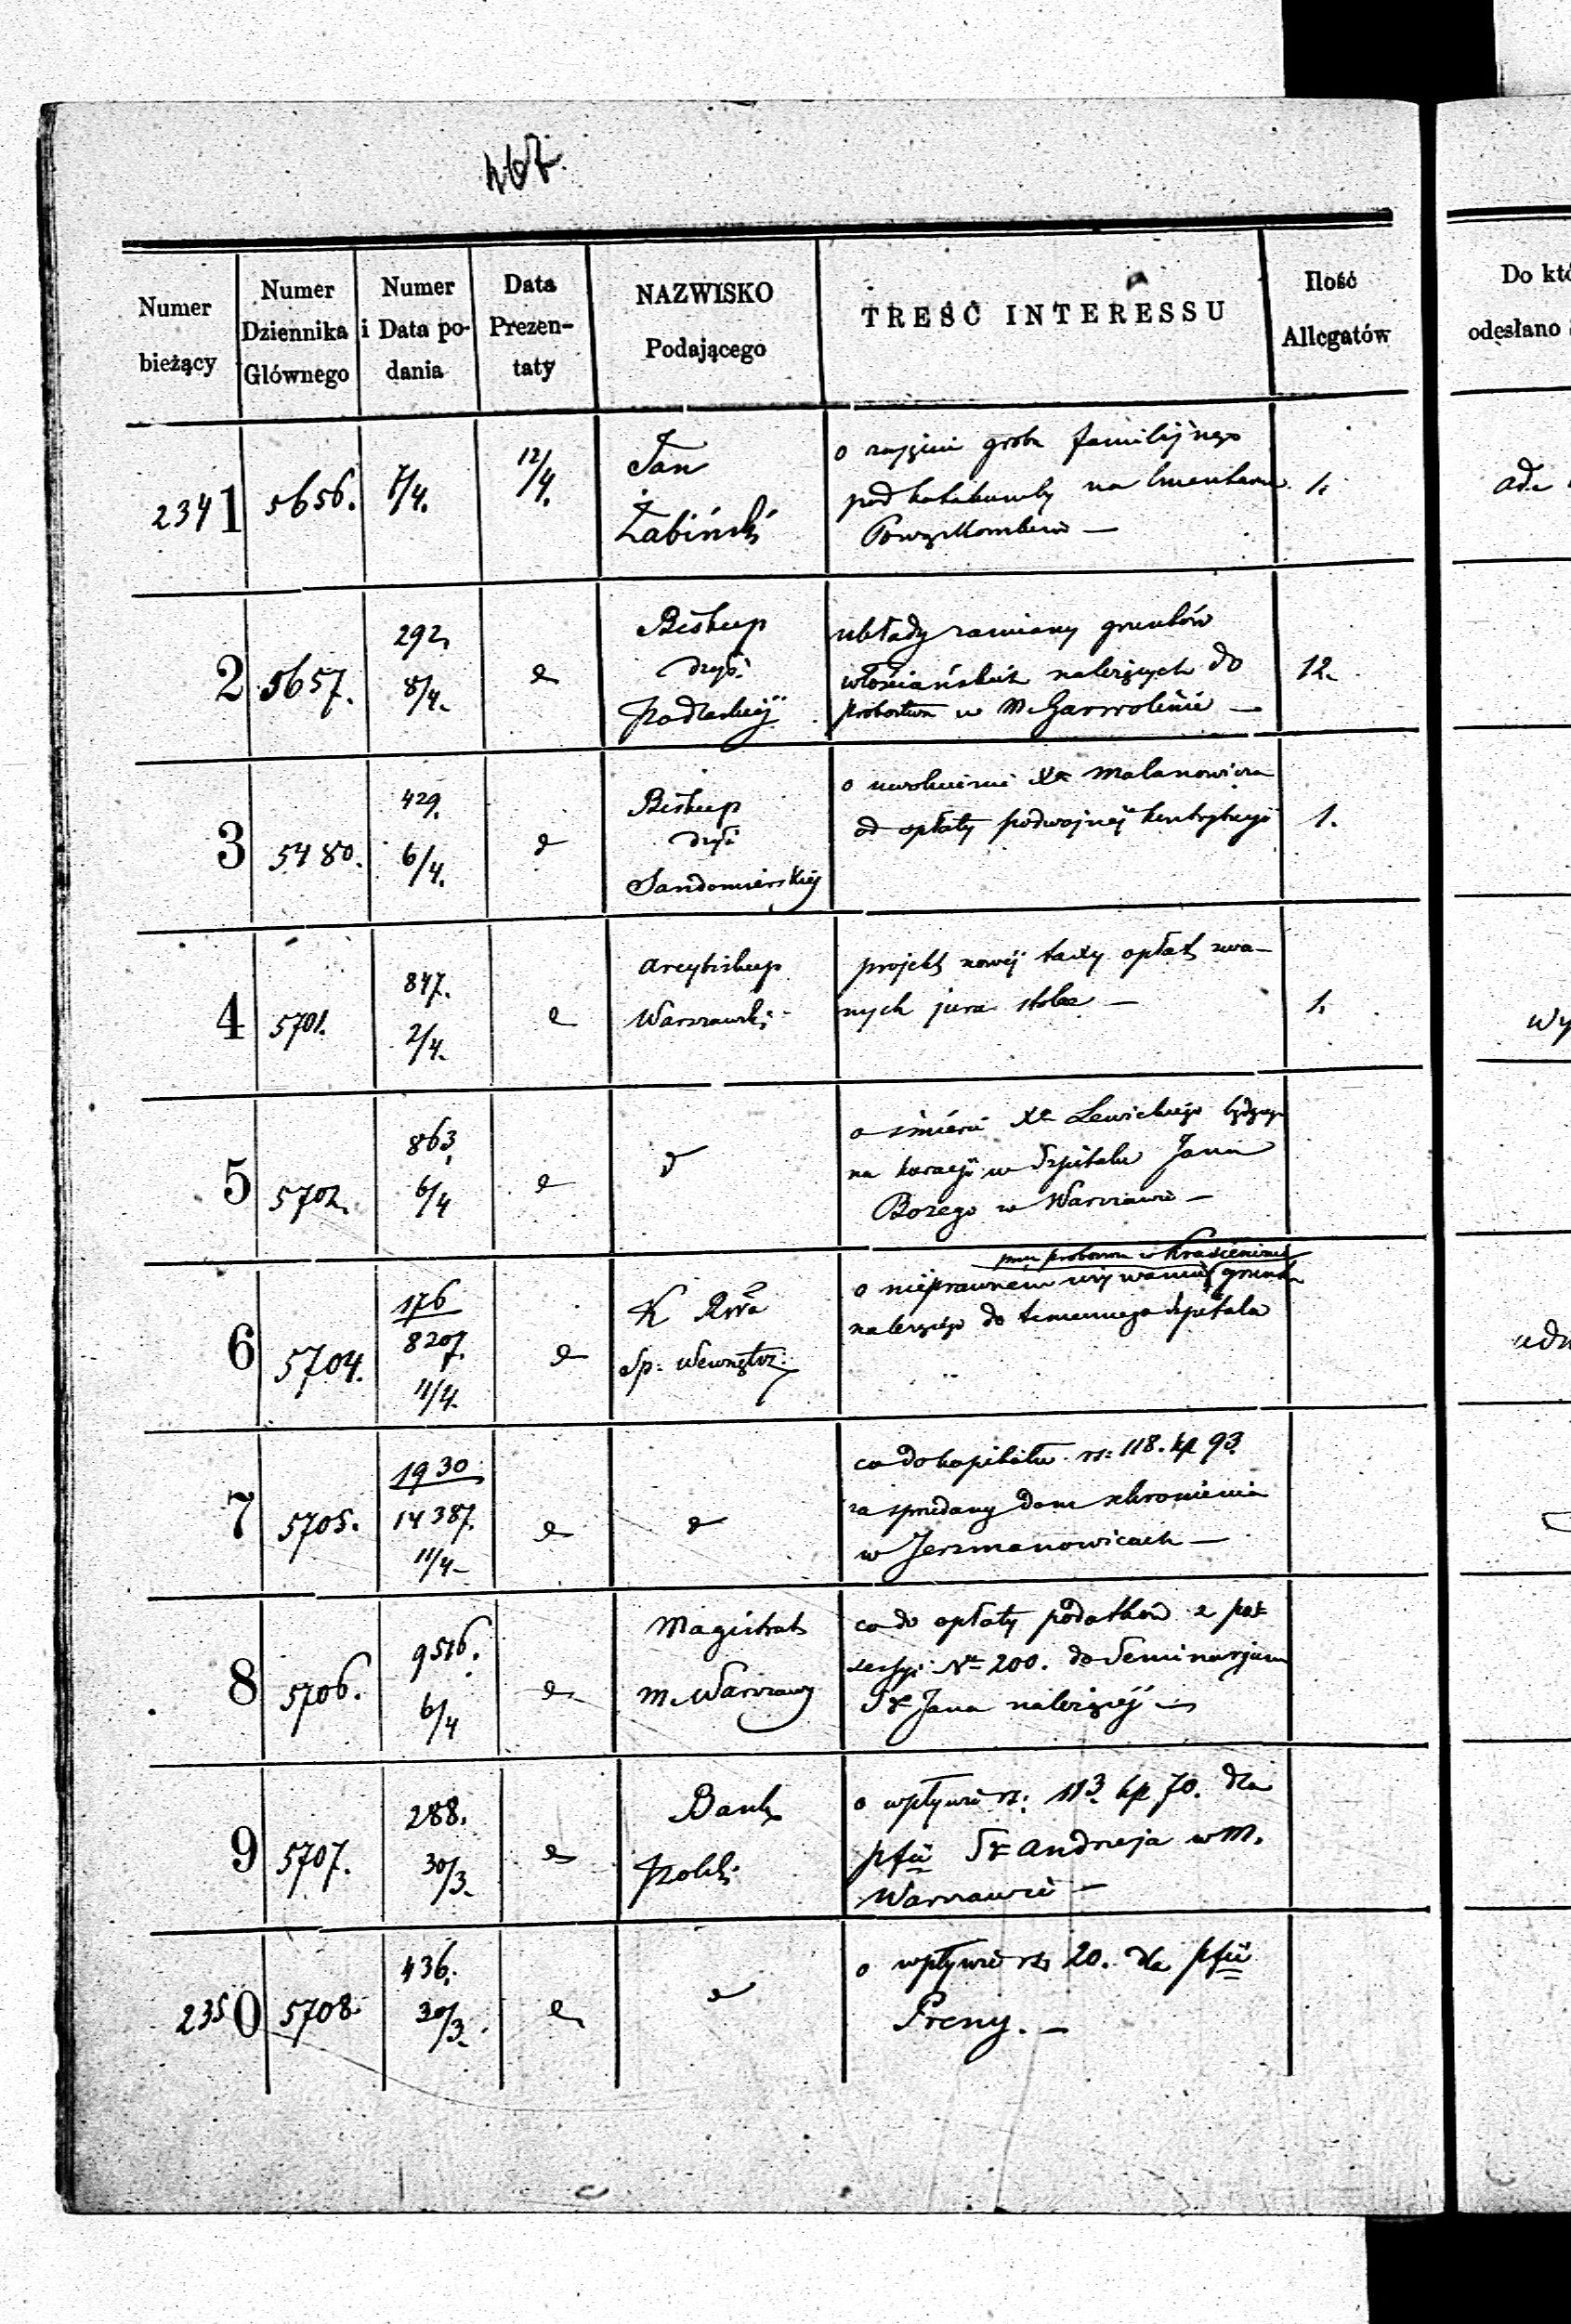 467.
Numer bieżący
Numer Dziennika Głównego
Numer i Data podania
Data Prezentaty
NAZWISKO Podającego
TREŚĆ INTERESSU
Ilość Allegatów
Do któ
odesłano
2341 5656. 7/4. 12/4. Jan Żabiński
o zajęciu grobu familijnego
pod katakumby na Cmentarzu
Powązkowskim — 1.
ad.
2 5657. 292. 8/4. d Biskup dyec: Podlaskiej
układy zamiany gruntów
włościańskich należących do
probostwa w M. Garwolinie — 12.
3 5480. 429. 6/4. d Biskup dyec: Sandomierskiej
o uwolnienie Xa Malanowicza
od opłaty podwójnej kontrybucyi 1.
4 5701. 847. 2/4. d Arcybiskup Warszawski
projekt nowej taxy opłat zwa-
nych jura stolae — 1.
wy
5 5702. 863. 6/4 d d
o śmierci Xa Lewickiego będącego
na kuracji w Szpitalu Jana
Bożego w Warszawie —
6 5704. 176 8207. 11/4. d K Rwa Sp: Wewnętrz:
przez proboszcza w
o nieprawnem używaniu gruntu
należącego do tamecznego szpitala
7 5705. 1930 14387. 11/4. d d
co do kapitału rs: 118. kp 93.
za sprzedany dom schronienia
w Jerzmanowicach —
8 5706. 9516. 6/4 d Magistrat m. Warszawy
co do opłaty podatków z pos-
sessyi No 200. do Seminarjum
Sgo Jana należącej —
9 5707. 288. 30/3. d Bank Polski
o wpływie rs: 113. kp 70. dla
pfii Sgo Andrzeja w M.
Warszawie —
2350 5708 436. 30/3. d d
o wpływie rs. 20. dla pfii
Preny. —